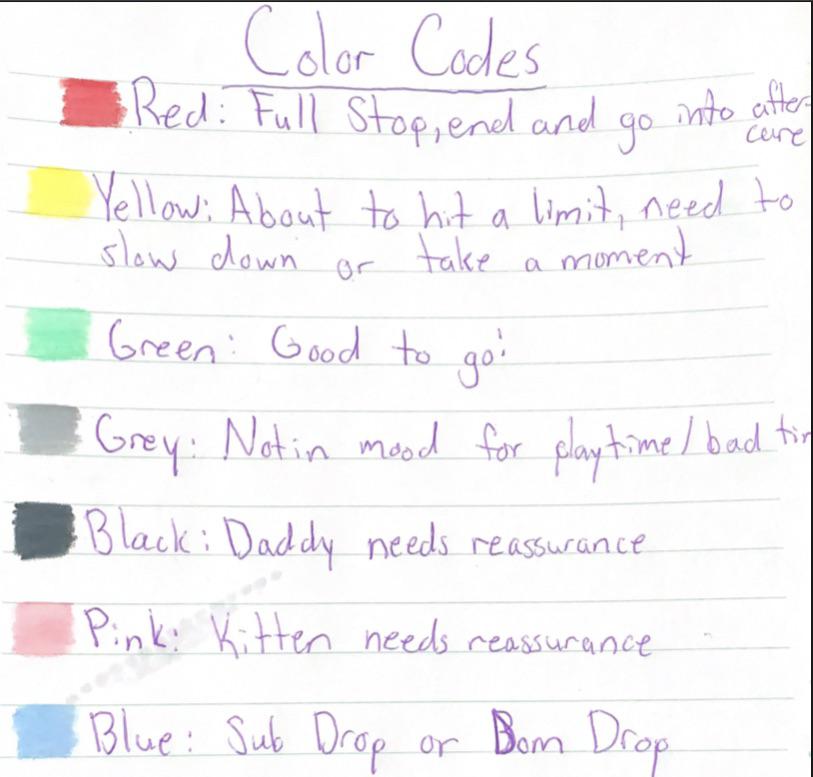 Color Codes
Red: Full Stop, end and go into after-
care
Yellow: About to hit a limit, need to
slow down or take a moment
Green: Good to go!
Grey: Not in mood for playtime/bad
Black: Daddy needs reassurance
Pink: Kitten needs reassurance
Blue: Sub Drop or Dom Drop